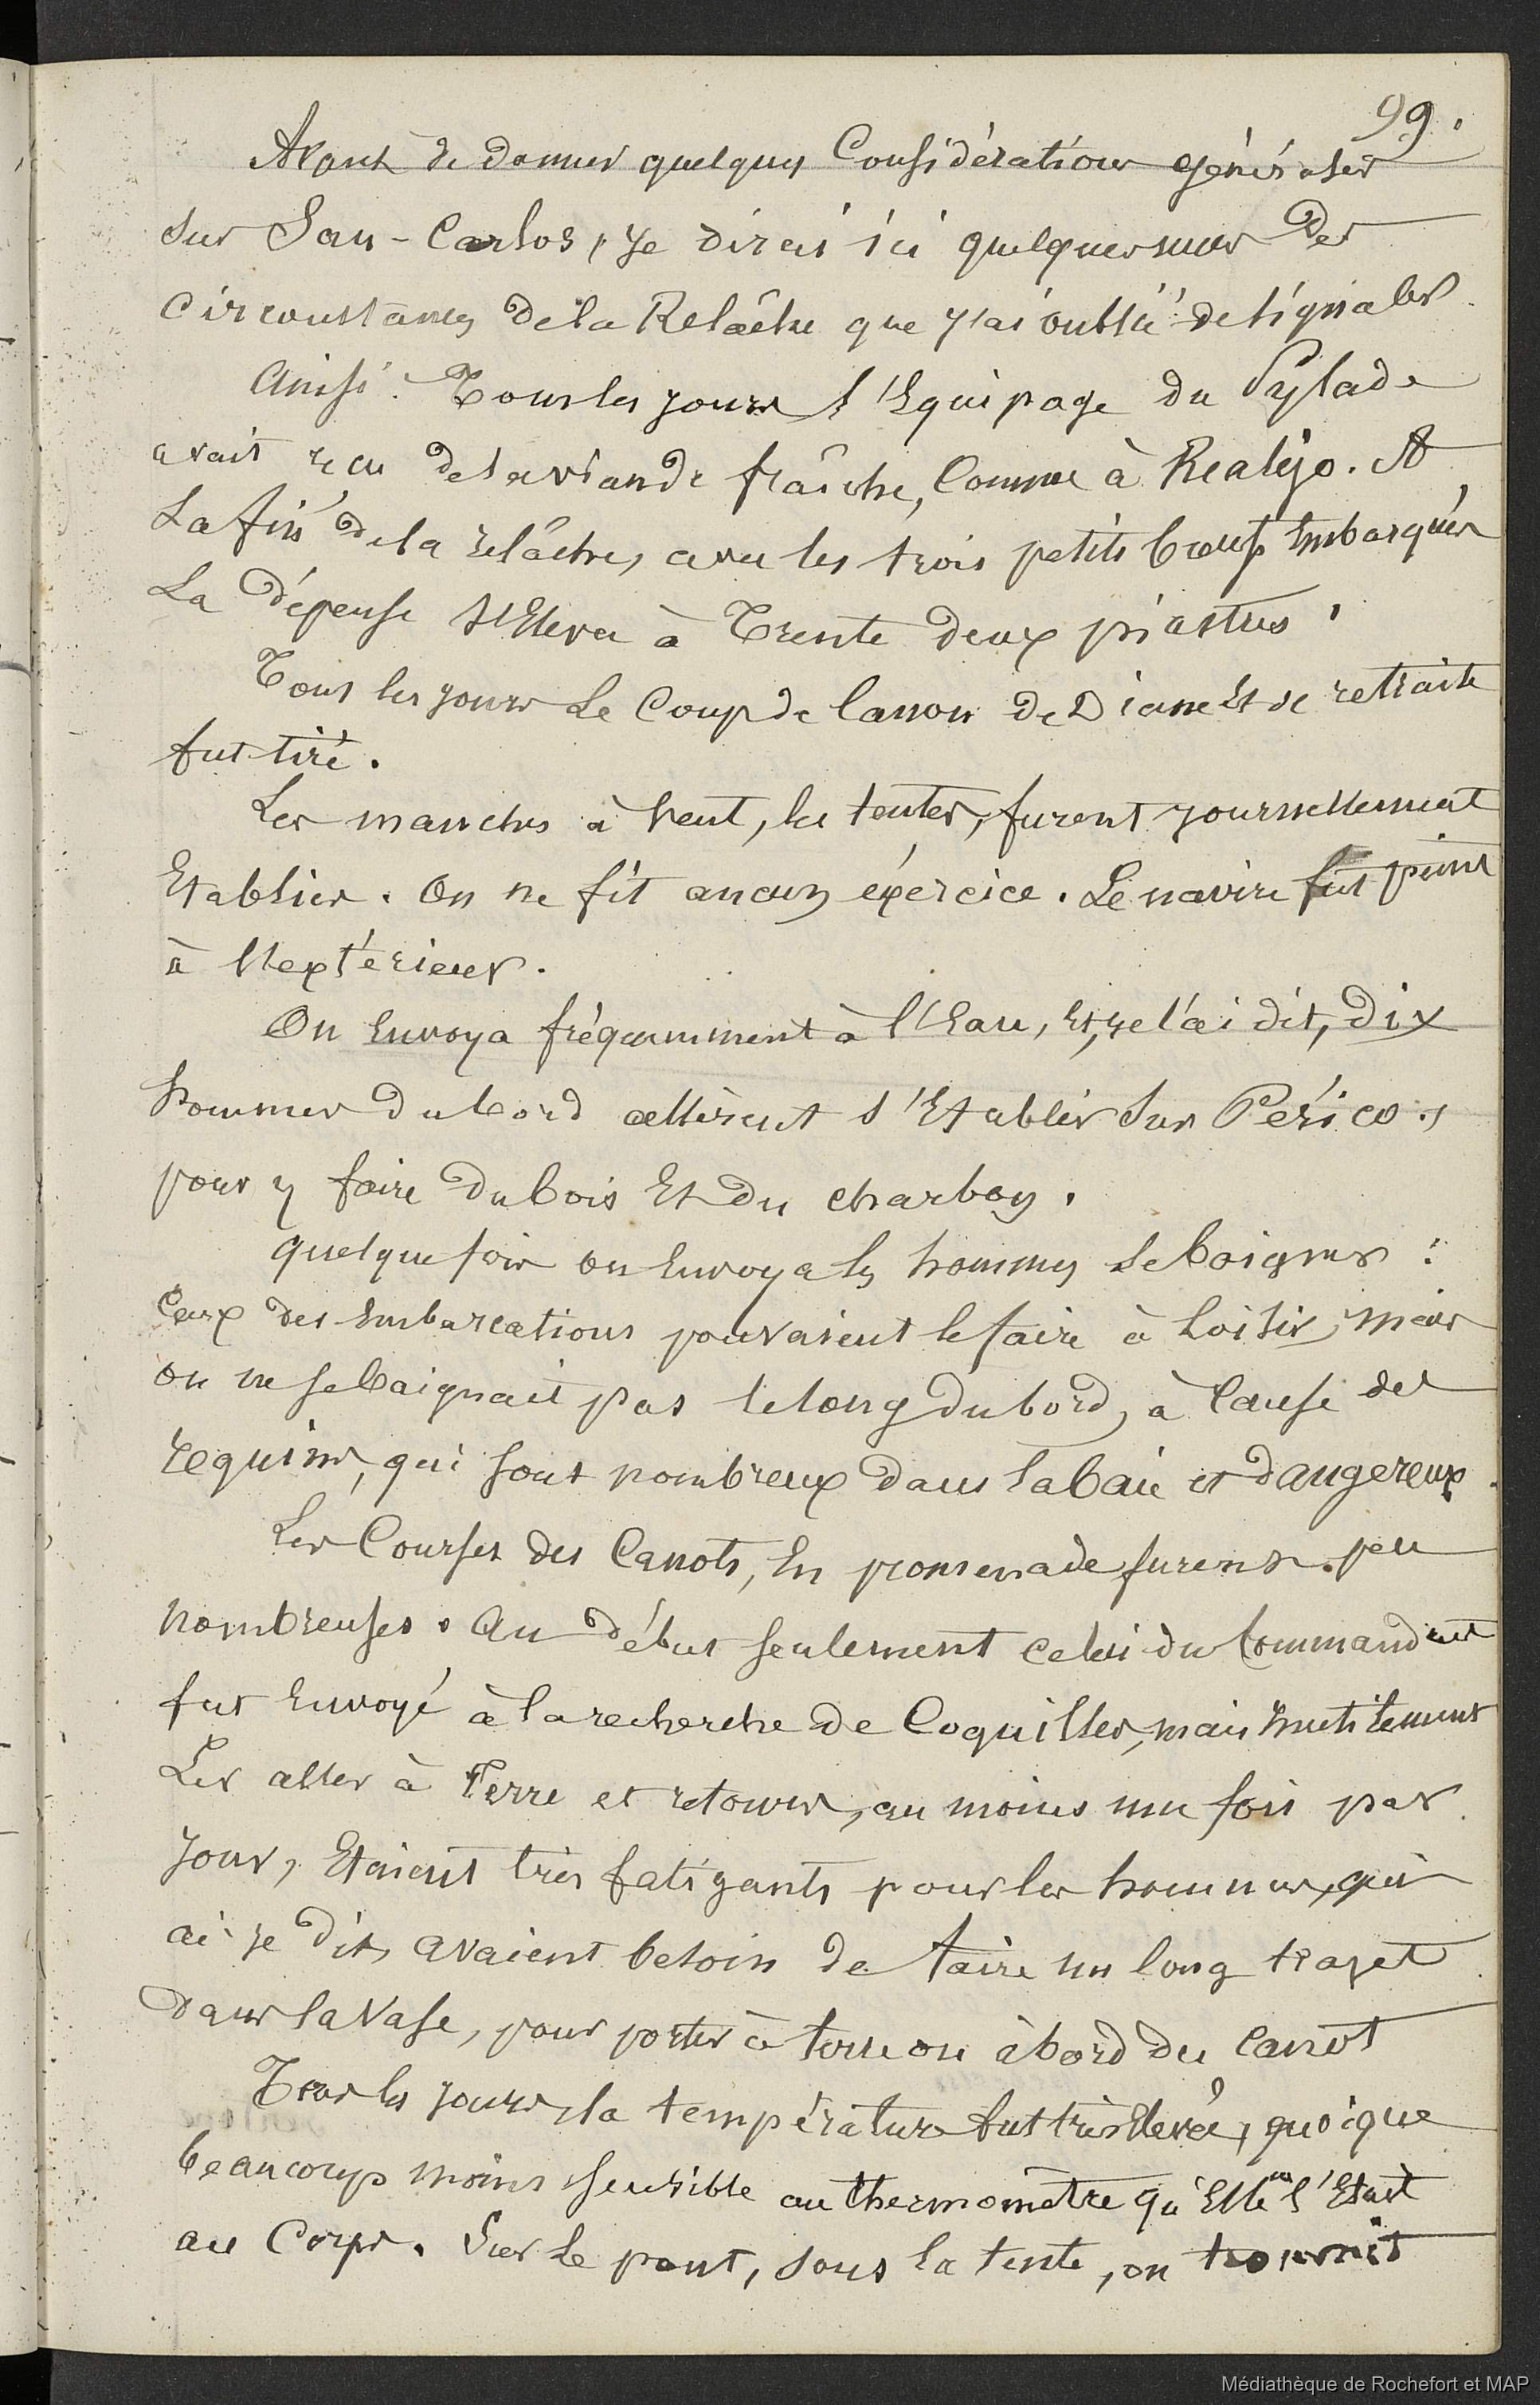 99.
Avant de donner quelques Considérations générales
sur San-Carlos, je dirai ici quelques unes des
circonstances de la Relâche que j'ai oublié de signaler.
Ainsi : Tous les jours l'Equipage du Pylade
avait reçu de la viande fraîche, Comme à Realejo. A
La fin de la relâche, avec les trois petits bœufs Embarqués,
La dépense s'Eleva à Trente deux piastres.
Tous les jours Le Coup de Canon de Diane Et de retraite
fut tiré.
Les manches à Vent, les tentes, furent journellement
Etablies. On ne fit aucun éxercice. Le navire fut peint
à l'extérieur.
On Envoya fréquemment à l'Eau, Et, je l'ai dit, Dix
hommes du bord allèrent s'Etablir sur Périco,
pour y faire du bois Et du charbon.
quelque fois on Envoya les hommes se baigner :
Ceux des Embarcations pouvaient le faire à Loisir, Mais
on ne se baignait pas le long du bord, à Cause des
requins, qui sont nombreux dans la baie et dangereux.
Les Courses des Canots, En promenade furent peu
nombreuses. Au début seulement celui du Commandant
fut Envoyé à la recherche de Coquilles, mais Inutilement
Les aller à Terre et retours, au moins une fois par
jour, Etaient très fatigants pour les hommes, qui
ai-je dit, avaient besoin de faire un long trajet
dans la Vase, pour porter à terre ou à bord du Canot
Tous les jours, la température fut très Elevée, quoique
beaucoup moins sensible au thermomètre qu'Elle ne l'Etait
au Corps. Sur le pont, sous la tente, on trouvait
Médiathèque de Rochefort et MAP